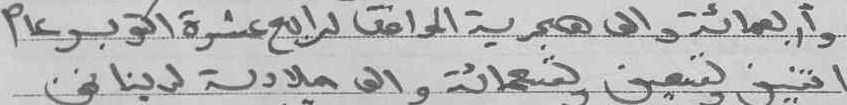 وأربعمائة والف هجرية الموافق لرابع عشرة اكتوبر عام
اثنين وتسعين وتسعمائة والف ميلادية لدينا نحن